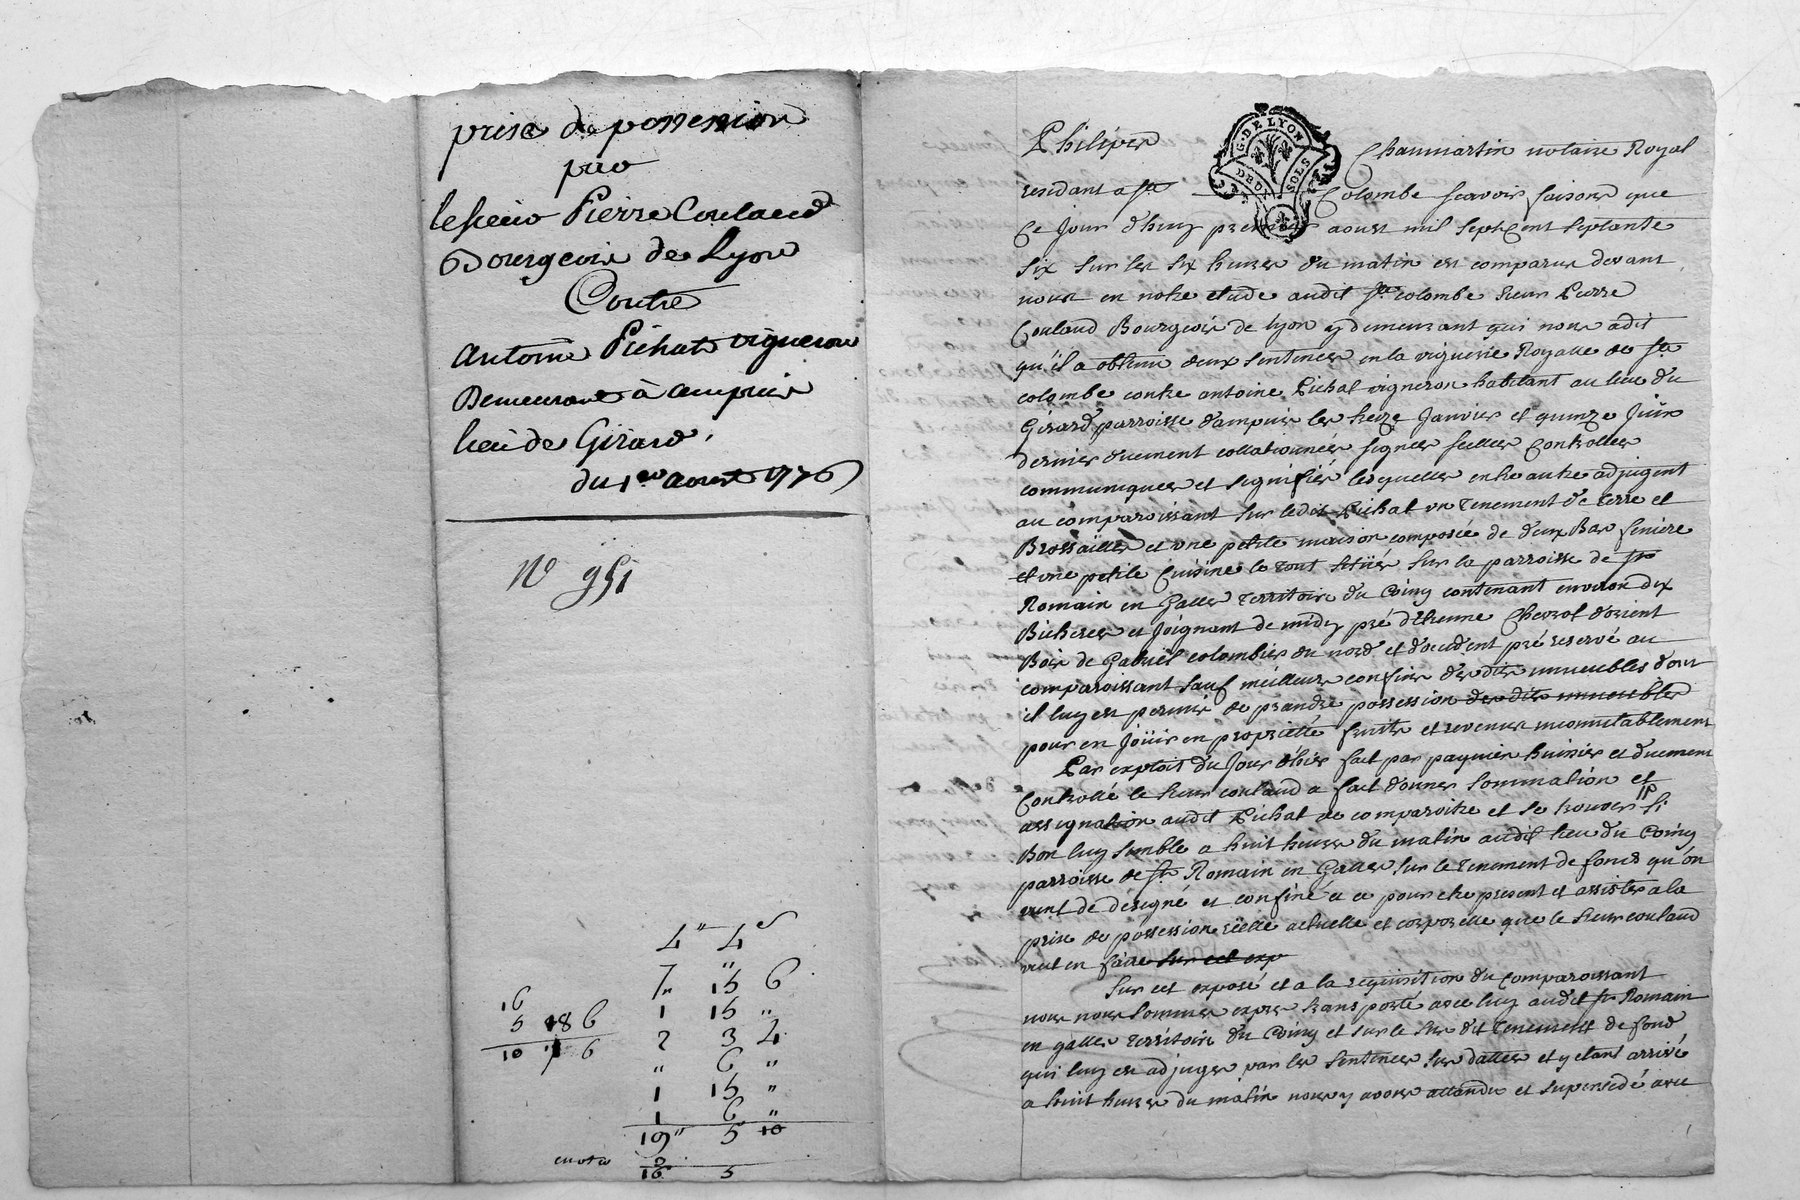 prise de possession
pour
le sieur Pierre Couland
Bourgeois de Lyon
Contre
antoine Pichat vigneron
Demeurant à ampuis
lieu de Girard.
du 1er aoust 1776
N° 951
4" 4s
7" 15 6
1 15 "
2 3 4
" 6 "
1 15 "
1 6 "
19" 5 10
16 5
16
5 18 6
10 6
G. DE LYON
DEUX SOLS
Philiper Chaumartin notaire Royal
residant a ste Colombe scavoir faisons que
Ce Jour d'huy premier aoust mil septCent septante
six sur les six heures du matin est comparus devant
nous en notre etude audit ste colombe sieur Pierre
Couland Bourgeois de lyon y demeurant qui nous a dit
qu'il a obtenu deux sentences en la viguerie Royalle de ste
colombe contre antoine Pichat vigneron habitant au lieu du
Girard parroisse d'ampuis les treize Janvier et quinze Juin
dernier duement collationnées signées scellées Controllées
communiquées et signifiés lesquelles entre autre adjugent
au comparoissant sur ledit Pichat un tenement de terre et
Brossailles et une petite maison composée de deux Bas feniere
et une petite Cuisine le tout scitués sur la parroisse de st
Romain en Galles territoire du Coing contenant environ dix
Bicherées et Joignant de midy pré d'Etienne Chevrol d'orient
Bois de Gabriel colombier du nord et d'occident pré reservé au
comparoissant sauf meilleurs confins desdits immeubles dont
il luy est permis de prandre possession desdits immeubles
pour en Joüir en proprietté fruits et revenus incommutablement
Par exploit du Jour d'hier fait par paquier huissier et duement
Controllé le sieur couland a fait donner sommation et
assignation audit Pichat de comparoitre et se trouver si
Bon luy semble a huit heures du matin audit lieu du Coing
parroisse de st Romain en Galles sur le tenement de fonds qu'on
vient de designé et confiné a ce pour etre present et assister a la
prise de possession réelle actuelle et corporelle que le sieur couland
veut en faire sur cet exp
Sur cet exposé et a la requisition du Comparoissant
nous nous sommes exprès transporté avec luy audit st Romain
en galles territoire du Coing et sur le susdit tenement de fond
qui luy est adjuger par les sentences sus dattées et y etant arrivé
a huit heures du matin nous y avons attandu et supersedé avec